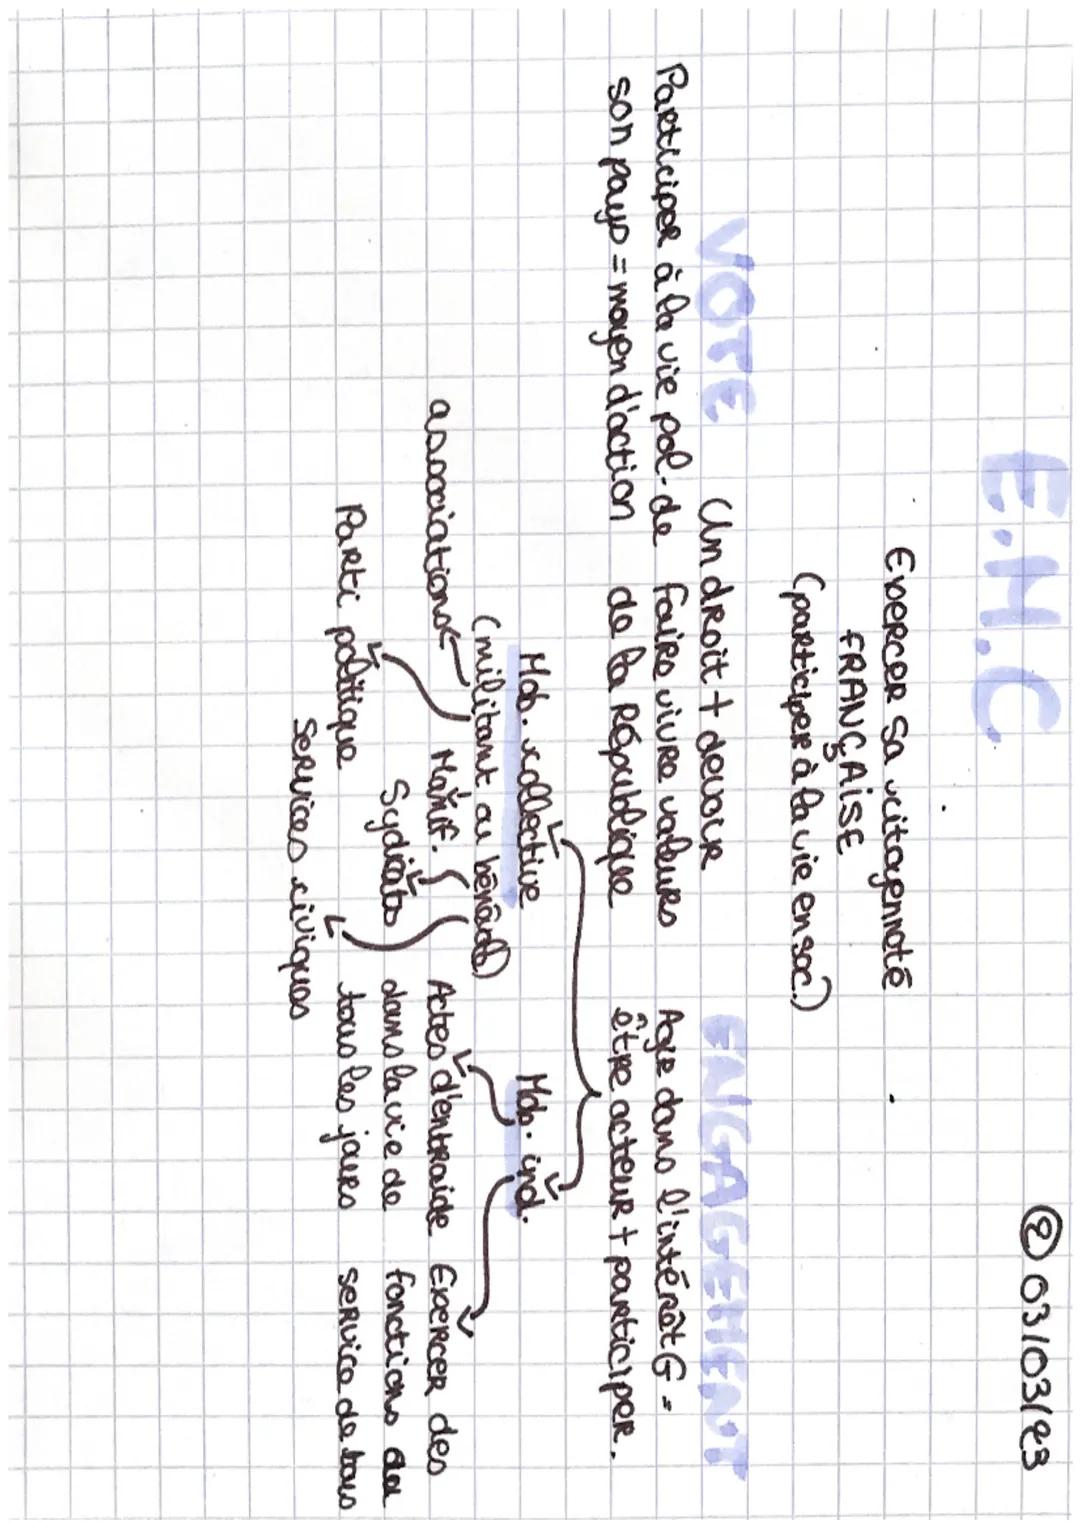 ② 03/03/23
E.M.C.
Exercer sa citoyenneté
FRANÇAISE
(participer à la vie en soc.)
VOTE
ENGAGEMENT
Un droit + devoir
Participer à la vie pol. de
son pays = moyen d'action
faire vivre valeurs
de la République
Agir dans l'intérêt G =
être acteur + participer.
Mob. collective
(militant ou bénévole)
associations
Manif.
Sydicats
Parti politique
Services civiques
Mob. ind.
Actes d'entraide
dans la vie de
tous les jours
Exercer des
fonctions au
service de tous